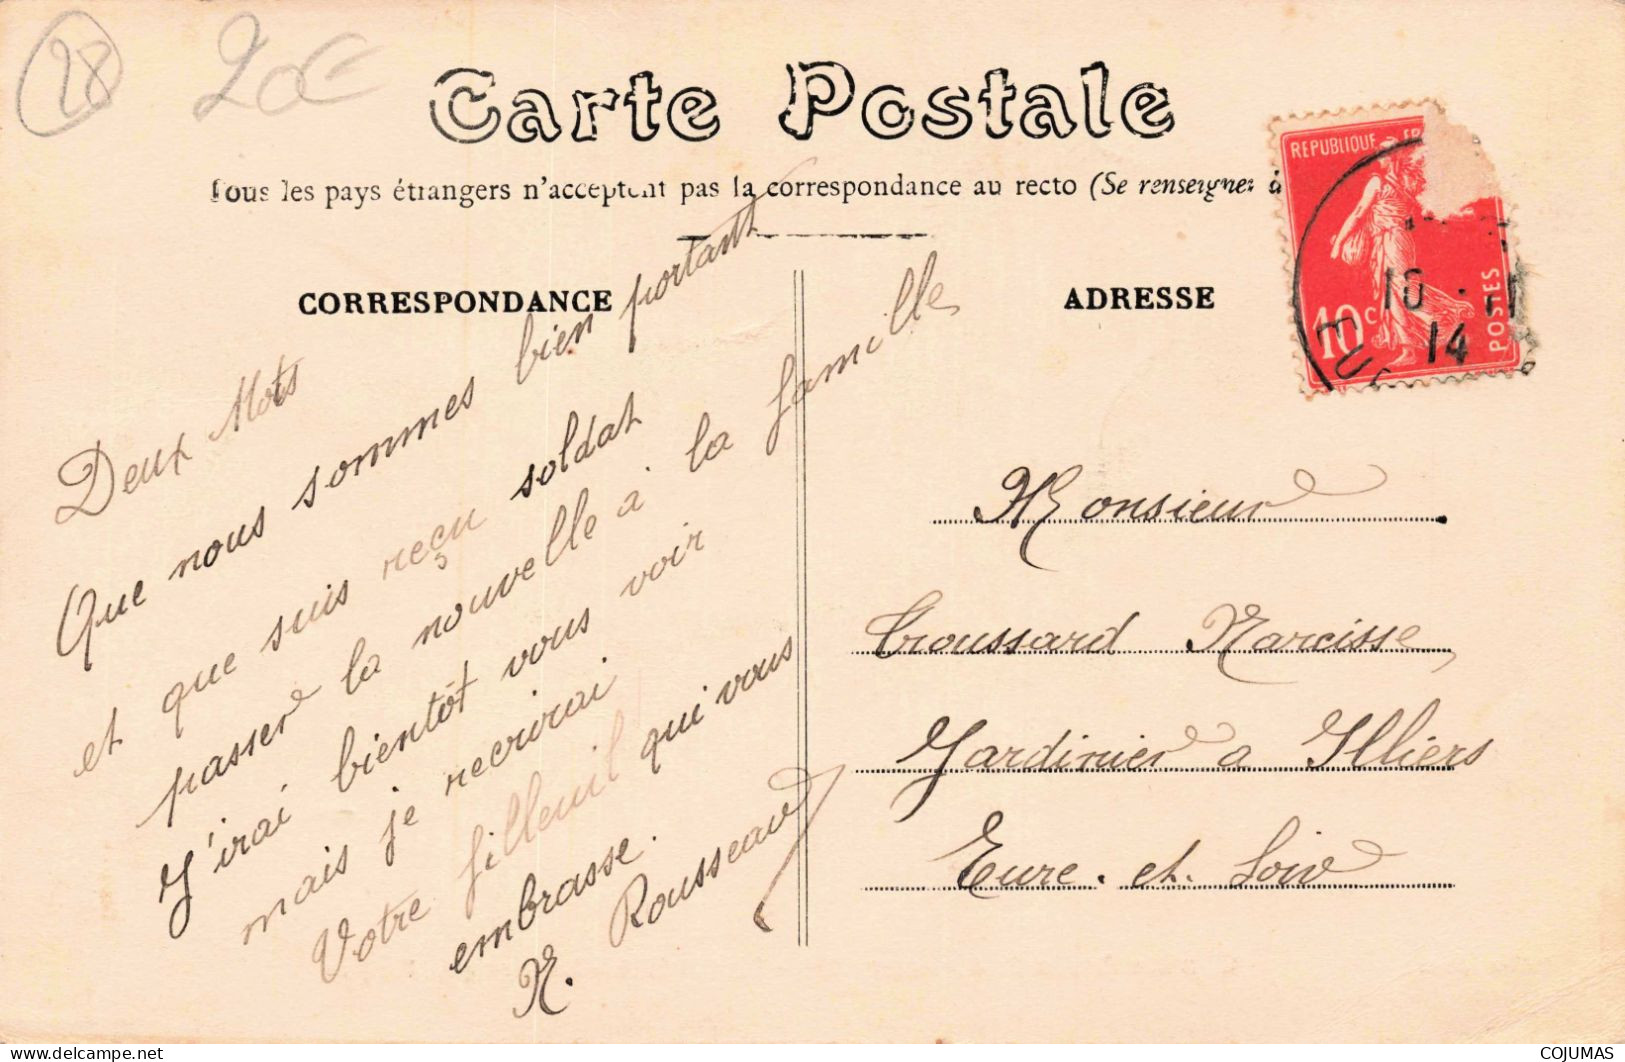 28 20€
Carte Postale
Tous les pays étrangers n'acceptent pas la correspondance au recto (Se renseigner à
CORRESPONDANCE
Deux Mots
Que nous sommes bien portant
et que suis reçu soldat
passer la nouvelle à la famille
J'irai bientôt vous voir
mais je recrirai
Votre filleuil qui vous
embrasse.
N. Rousseau
ADRESSE
Monsieur
Croussard Narcisse,
Jardinier a Illiers
Eure. et. Loir
REPUBLIQUE FR
10c
POSTES
14
www.delcampe.net
COJUMAS